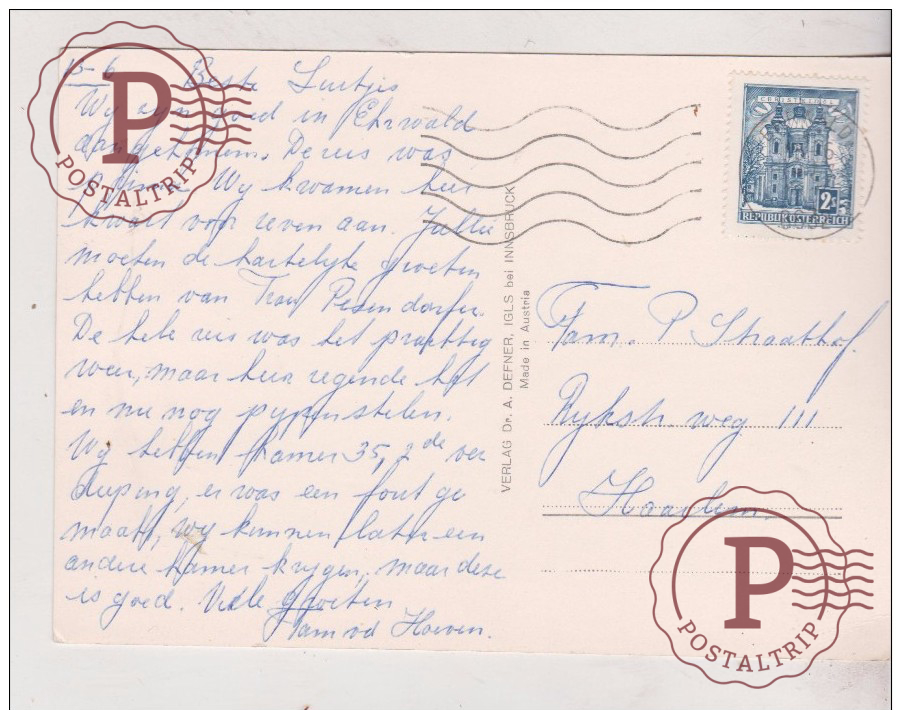 15-6 Beste Luitjes
Wy zyn goed in Ehrwald
aangekomen. De reis was
Wy kwamen hier
kwart voor zeven aan. Jullie
moeten de hartelijke groeten
hebben van Frau Pesendorfer.
De hele reis was het prachtig
weer, maar hier regende het
en nu nog pypenstelen.
Wy hebben kamer 35, 2de ver
dieping, er was een fout ge
maakt, wy kunnen later een
andere kamer krygen, maar deze
is goed. Veele groeten
Fam vd Hoeven.
VERLAG Dr. A. DEFNER, IGLS bei INNSBRUCK
Made in Austria
CHRISTKINDL
2S
REPUBLIK ÖSTERREICH
Fam. P Straathof.
Rykstr. weg 111
Haarlem.
P
POSTALTRIP
P
POSTALTRIP